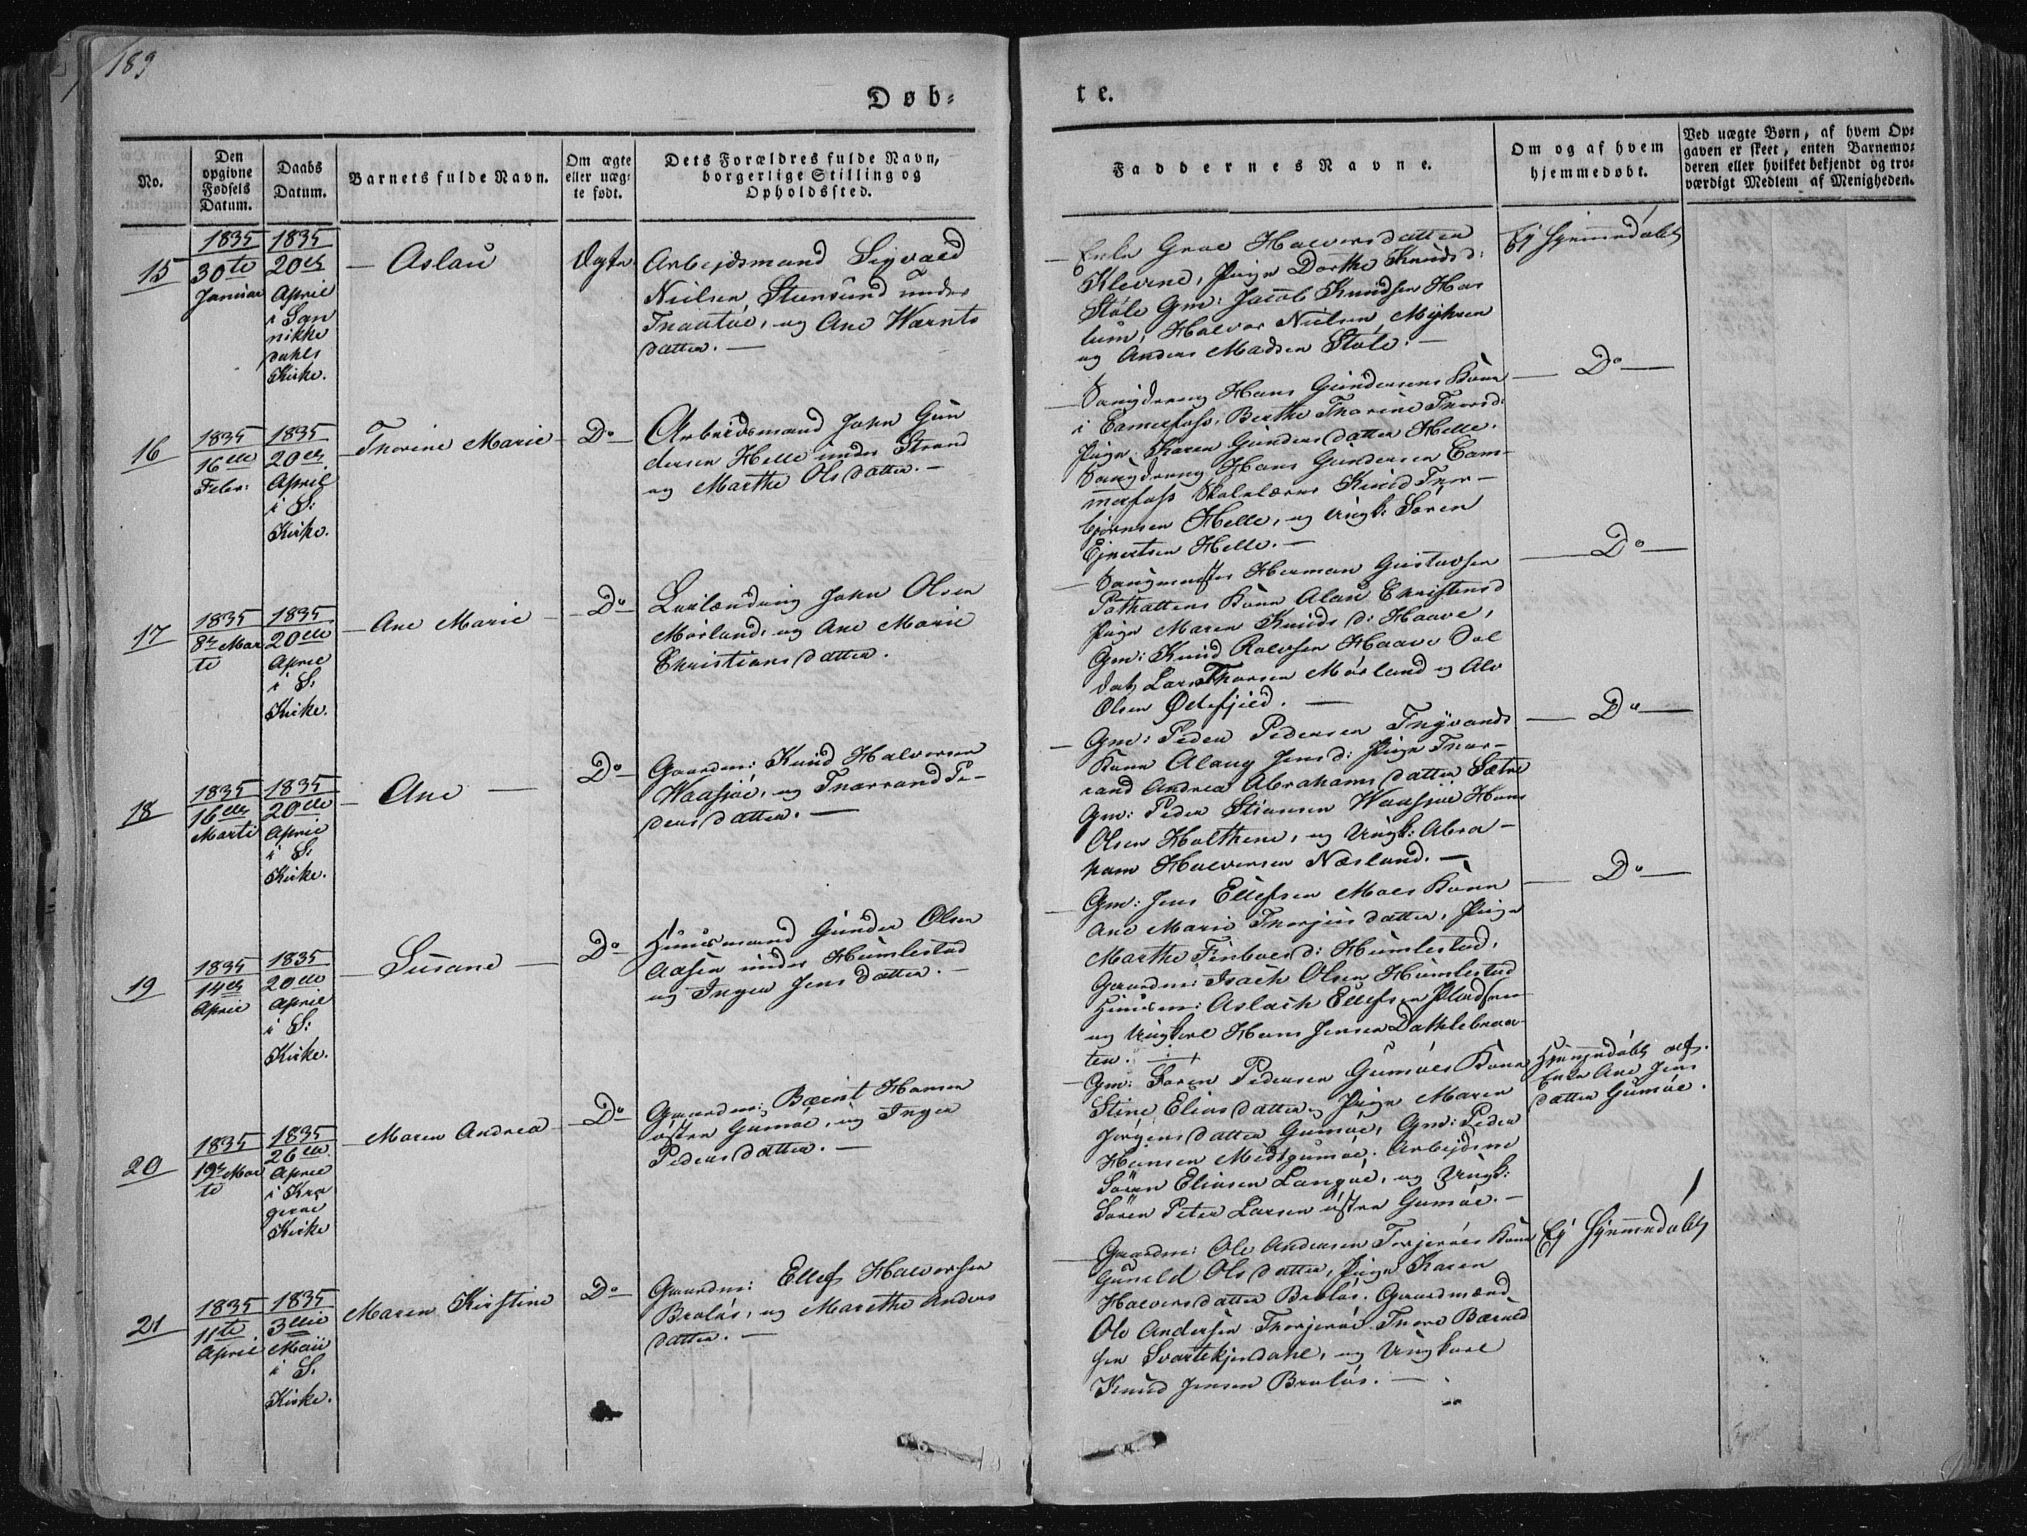 189
Døb-
te.
No.
Den
opgivne
Fødsels
Datum.
Daabs
Datum.
Barnets fulde Navn.
Om ægte
eller uæg-
te født.
Dets Forældres fulde Navn,
borgerlige Stilling og
Opholdssted.
Faddernes Navne.
Om og af hvem
hjemmedøbt.
Ved uægte Børn, af hvem Op-
gaven er skeet, enten Barnemo-
deren eller hvilket bekjendt og tro-
værdigt Medlem af Menigheden.
15
1835
30te
Januar
1835
20de
April
i San
nikke
dahls
Kirke.
Aslau
Ægte
Arbejdsmand Sigvald
Nielsen, Steensund under
Traatøe, og Ane Wærnts
datter.
Enke Groe Halvorsdatter
Klevene, Pige Dorthe Knudsd:
Støle Gm: Jacob Knudsen Has
lum, Halvor Nielsen Myhren
og Anders Madsen Støle.
Ej hjemmedøbt
16
1835
16de
Febr:
1835
20de
April
i S:
Kirke.
Thorine Marie
Do
Arbeidsmand John Gun
dersen Helle under Strand
og Marthe Olsdatter.
Saugdreng Hans Gundersens Kone
i Camerfoss, Berthe Thorine Thorsd:
Pige Karen Gundersdatter Helle.
Saugdreng Hans Gundersen Cam-
merfoss Skolelærer Knud Thor-
bjørnsen Helle, og Ungk: Søren
Ejvertsen Helle.
Do
17
1835
8de Mar
ti
1835
20de
April
i S:
Kirke.
Ane Marie
Do
Leilænding John Olsen
Mørland, og Ane Marie
Christiansdatter.
Saugmester Herman Gustavsen
Kone Alau Christensd
Pige Maren Knuds d: Haave,
Gm: Knud Rolvsen Haave Sol
dat Lars Thorsen Mørland og Alv
Olsen Ødefjeld.
Do
18
1835
16de
Marti
1835
20de
April
i S:
Kirke.
Ane
Do
Gaardm: Knud Halvorsen
Waasjøe, og Thorrand Pe-
dersdatter.
Gm: Peder Pedersen
Kone Alaug Jensd: Pige Thor-
rand Andrea Abrahamsdatter Sætre
Gm: Peder Stiansen Waasjøe Hans
Olsen Holthene, og Ungk: Abra-
ham Halvorsen Næsland.
Do
19
1835
14de
April
1835
20de
April
i S:
Kirke.
Susane
Do
Huusmand Gunder Olsen
Aasen under Humlestad
og Inger Jensdatter.
Gm: Jens Ellefsen Moes Kone
Ane Marie Thorjusdatter, Pige
Marthe Finboesd: Humlestad,
Gaardm: Isach Olsen Humlestad
Huusm: Aslach Ellefsen Pladsen
og Ungkarl Hans Jensen Dalslebraa-
ten.
Do
20
1835
19de Mar
ti
1835
26de
April
i Kra
gerøe
Kirke
Maren Andrea
Do
Gaardm: Bærnt Hansen
østre Gumøe, og Inger
Pedersdatter.
Gm: Søren Pedersen Gumøes Kone
Stine Eliasdatter, Pige Maren
Jørgensdatter Gumøe, Gm: Peder
Hansen Midtgumøe. Arbejdsm
Søren Eliasen Langøe, og Ungk:
Søren Peter Larsen østre Gumøe.
Hjemmedøbt af
Enke Ane Jens
datter Gumøe.
21
1835
11te
April
1835
3die
Maii
i S.
Kirke.
Maren Kirstine
Do
Gaardm: Ellef Halvorsen
Braløs, og Marthe Anders
datter.
Gaardm: Ole Andersen Torjerøes Kone
Gunild Olsdatter, Pige Karen
Halvorsdatter Braløs. Gaardmænd
Ole Andersen Thorjerøe Thore Bærulf
sen Svartekjendahl, og Ungkarl
Knud Jensen Braløs.
Ej hjemmedøbt